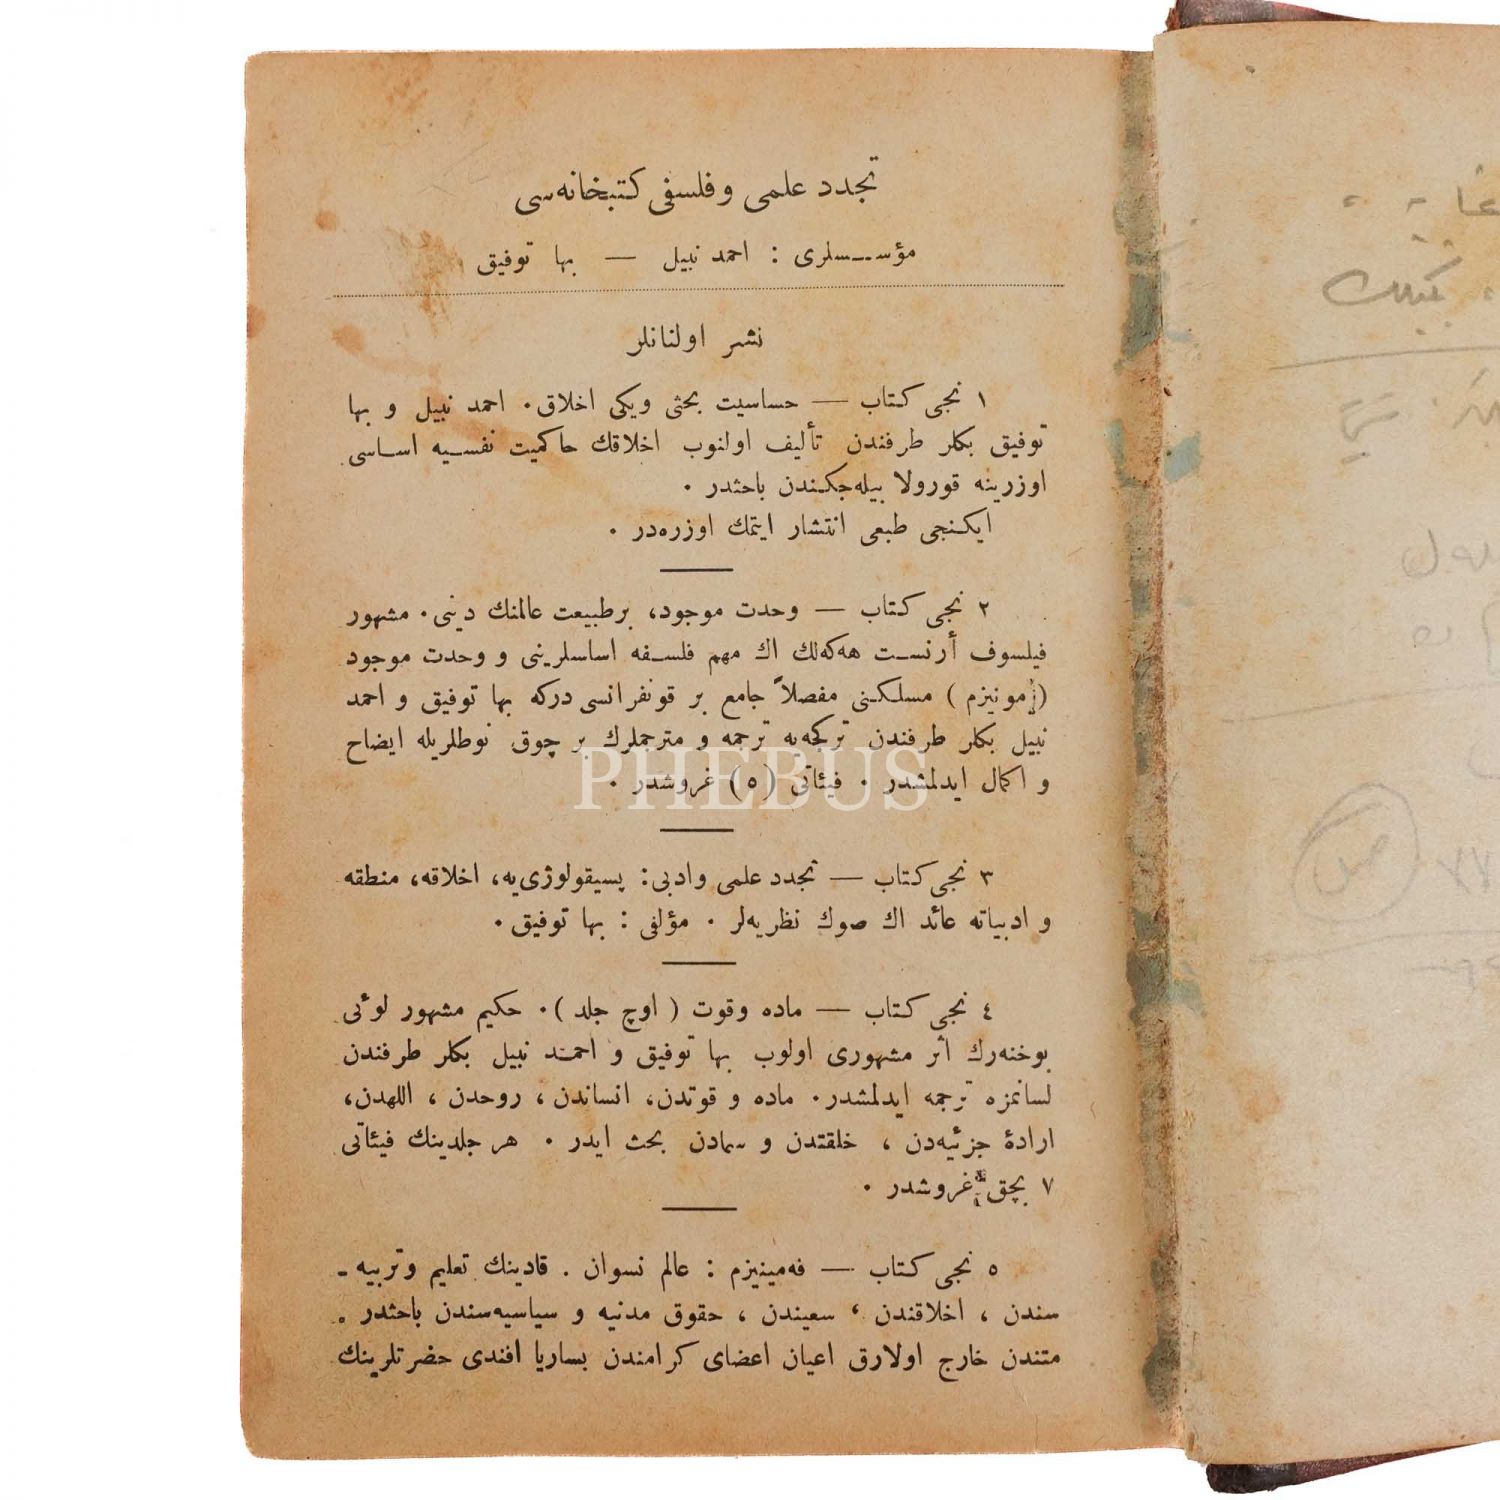 تجدد علمى و فلسفى كتبخانه‌سى
مؤسسلرى : احمد نبيل — بها توفيق
نشر اولنانلر
١ نجى كتاب — حساسيت بحثى ويكى اخلاق. احمد نبيل و بها
توفيق بكلر طرفندن تأليف اولنوب اخلاقك حاكميت نفسيه اساسى
اوزرينه قورولا بيله‌جكندن باحثدر .
ايكنجى طبعى انتشار ايتمك اوزره‌در .
٢ نجى كتاب — وحدت موجود، برطبيعت عالمنك دينى. مشهور
فيلسوف أرنست هه‌كه‌لك اك مهم فلسفه اساسلرينى و وحدت موجود
(مونيزم ) مسلكنى مفصلاً جامع بر قونفرانسى دركه بها توفيق و احمد
نبيل بكلر طرفندن تركجه‌يه ترجمه و مترجملرك بر چوق نوطلريله ايضاح
و اكمال ايدلمشدر . فيئاتى (٥) غروشدر .
PHEBUS
٣ نجى كتاب — تجدد علمى وادبى: پسيقولوژى‌يه، اخلاقه، منطقه
و ادبياته عائد اك صوك نظريه‌لر . مؤلفى : بها توفيق.
٤ نجى كتاب — ماده وقوت ( اوچ جلد ). حكيم مشهور لوئى
بوخنه‌رك اثر مشهورى اولوب بها توفيق و احمد نبيل بكلر طرفندن
لسانمزه ترجمه ايدلمشدر. ماده و قوتدن، انساندن ، روحدن ، اللهدن،
ارادهٔ جزئيه‌دن ، خلقتدن و سمادن بحث ايدر . هر جلدينك فيئاتى
٧ بچق غروشدر .
٥ نجى كتاب — فه‌مينيزم : عالم نسوان . قادينك تعليم وتربيه ـ
سندن ، اخلاقندن ، سعيندن ، حقوق مدنيه و سياسيه‌سندن باحثدر .
متندن خارج اولارق اعيان اعضاى كرامندن بساريا افندى حضرتلرينك